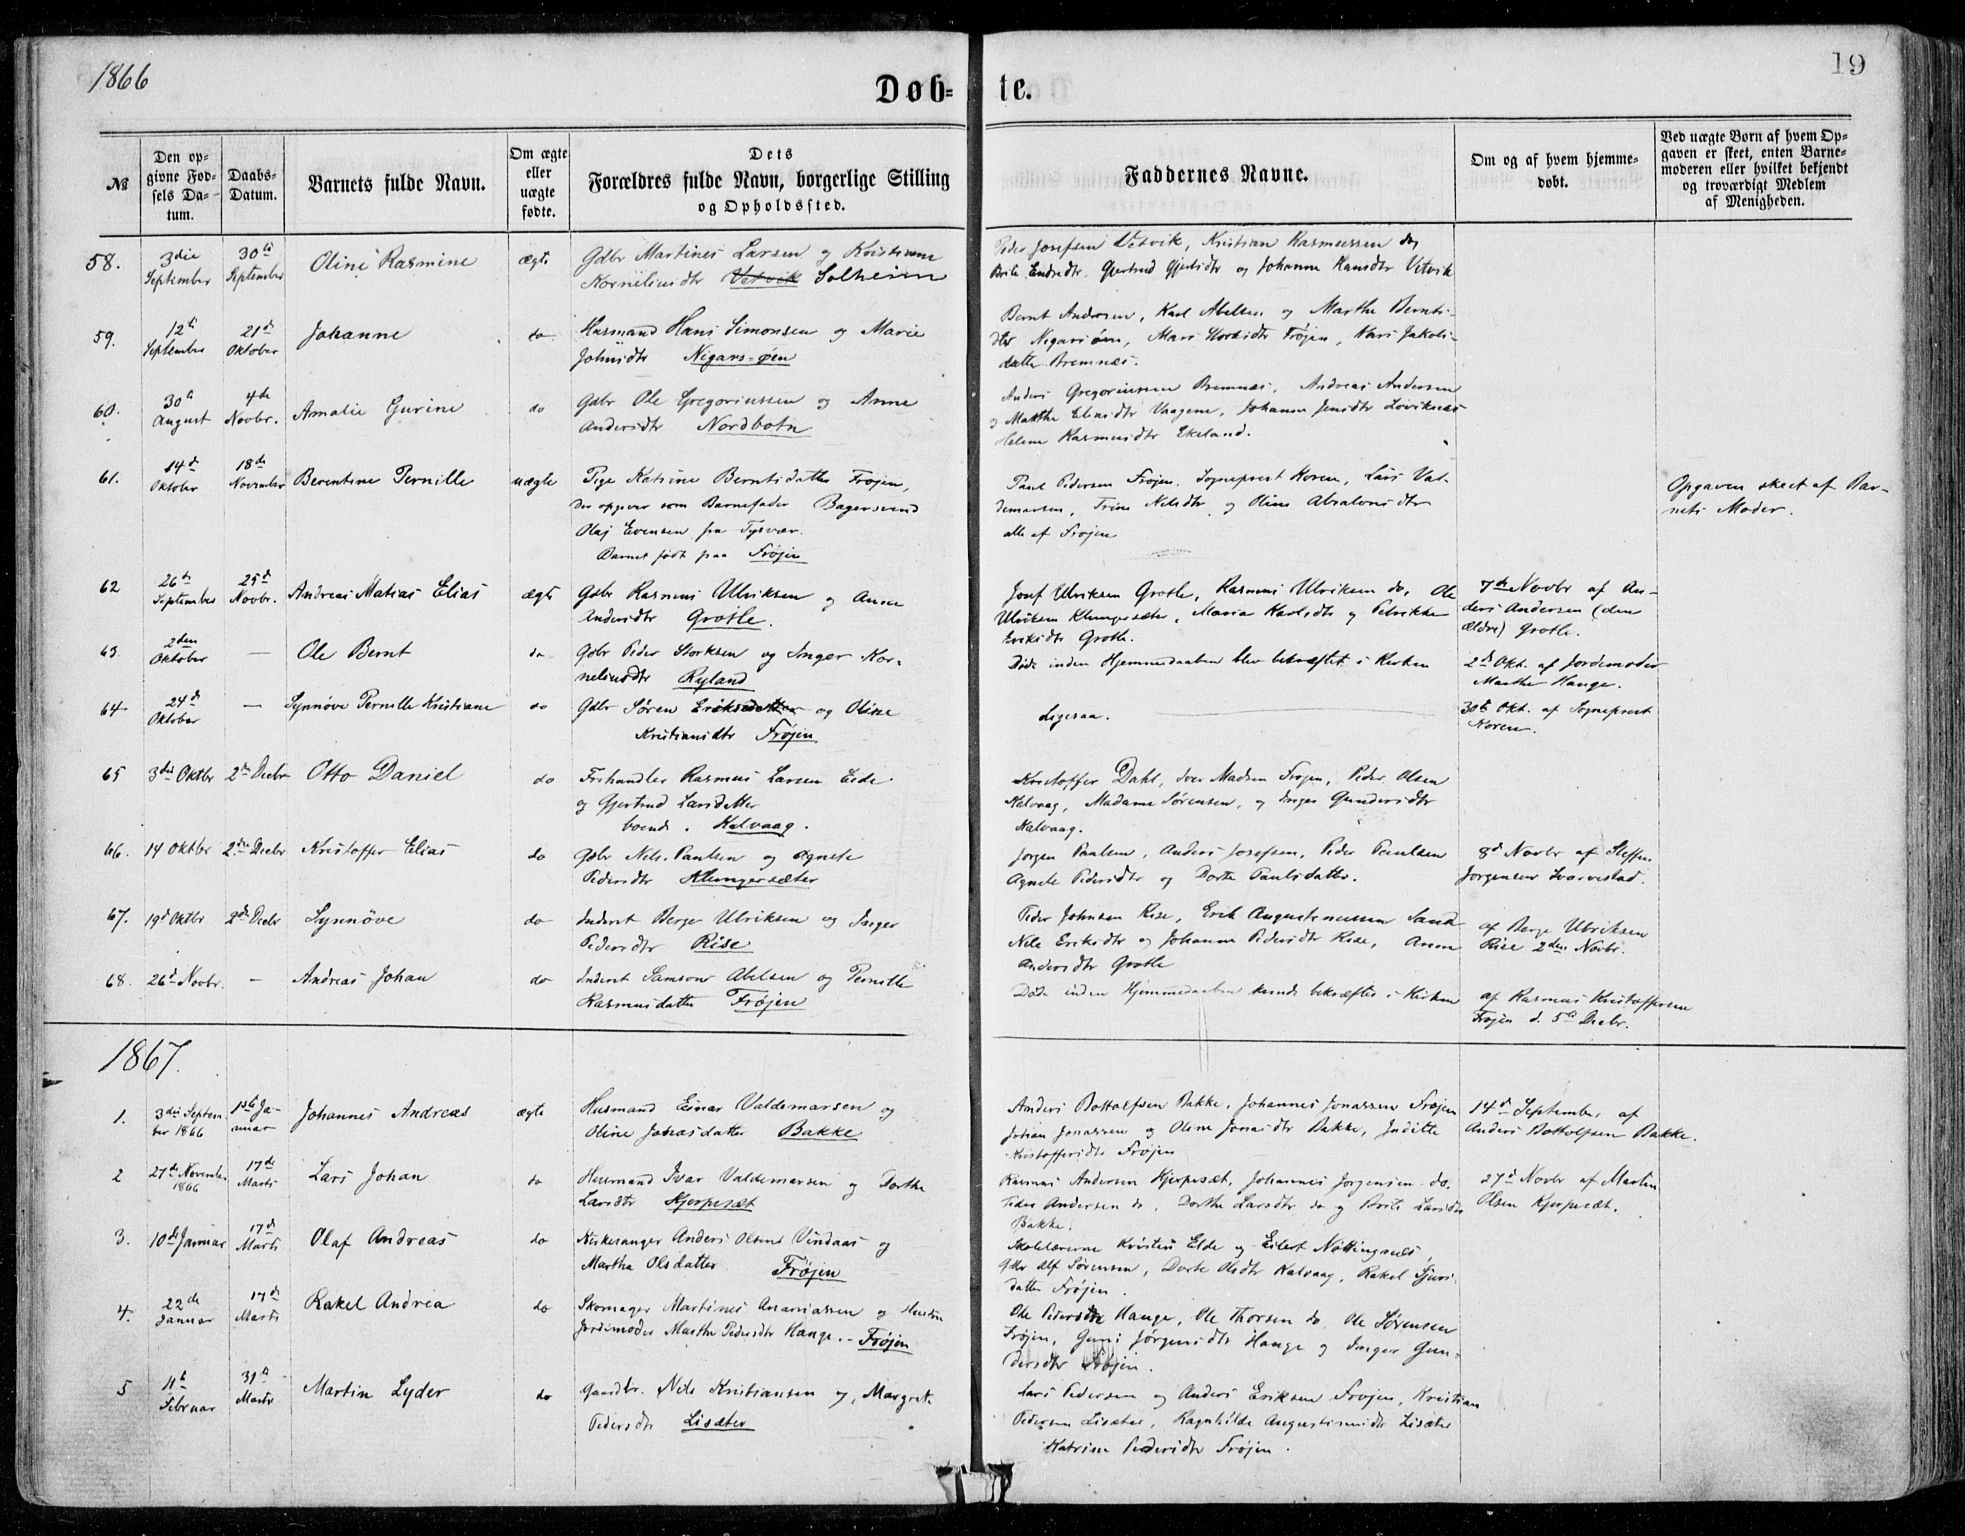 1866
19
Døb-
te.
№
Den op-
givne Fød-
sels Da-
tum.
Daabs-
Datum.
Barnets fulde Navn.
Om ægte
eller
uægte
fødte.
Dets
Forældres fulde Navn, borgerlige Stilling
og Opholdssted.
Faddernes Navne.
Om og af hvem hjemme-
døbt.
Ved uægte Børn af hvem Op-
gaven er skeet, enten Barne-
moderen eller hvilket bekjendt
og troværdigt Medlem
af Menigheden.
58.
3die
September
30te
September
Oline Rasmine
ægte
Gdbr Martines Larsen og Kristianne
Korneliusdtr Vetvik Solheim
Peder Josefsen Vetvik, Kristian Rasmussen do,
Brite Endredtr, Gjertrud Gjertsdtr og Johanne Hansdtr Vetvik
59.
12te
September
21de
Oktober
Johanne
do
Husmand Hans Simonsen og Marie
Johnsdtr Nigars-øen
Bernt Andersen, Karl Abelsen og Marthe Bernts-
dtr Nigarsøen, Frøjen, Jakobs-
datter Bremnæs.
60.
30te
August
4de
Novbr.
Amalie Gurine
do
Gdbr Ole Gregoriussen og Anne
Andersdtr Nordbotn
Anders Gregoriussen Bremnæs, Andreas Andersen
og Marthe Eliasdtr Vaagene, Johanne Jensdtr Løviknæs
Helene Rasmusdtr Ekeland.
61.
14de
Oktober
18de
November
Berentine Pernille
uægte
Pige Katrine Berntsdatter Frøjen,
der opgiver som Barnefader Bagersvend
Olaj Evensen fra Tysvær.
Barnet født paa Frøjen
Paul Pedersen Frøjen, Sogneprest Koren, Lars Val-
demarsen, Trine Nilsdtr og Oline Absalonsdtr
alle af Frøjen
Opgaven skeet af Bar-
nets Moder.
62
26de
September
25de
Novbr.
Andreas Matias Elias
ægte
Gdbr Rasmus Ulriksen og Anne
Andersdtr Grotle.
Josef Ulriksen Grotle, Rasmus Ulriksen do, Ole
Ulriksen Klungersæter, Maria Karlsdtr og Petrikke
Eriksdtr Grotle.
7de Novbr af An-
ders Andersen (den
ældre) Grotle.
63.
2den
Oktober
—
Ole Bernt
do
Gdbr Peder Storksen og Inger Kor-
neliusdtr Ryland
Døde inden Hjemmedaaben blev bekræftet i Kirken
2d Okt. af Jordemoder
Marthe Hauge.
64
24de
Oktober
—
Synnøve Pernille Kristiane
do
Gdbr Søren Eriksdatter og Oline
Kristiansdtr Frøjen
Ligesaa.
30te Okt. af Sogneprest
Koren.
65
3die Oktbr
2den Decbr
Otto Daniel
do
Frihandler Rasmus Larsen Eide
og Gjertrud Larsdatter
boende Kalvaag.
Kristoffer Dahl, Iver Madsen Frøjen, Peder Olsen
Kalvaag, Madame Sørensen, og Inger Gundersdtr
Kalvaag.
66.
14 Oktbr
2den Decbr
Kristoffer Elias
do
Gdbr Nils Paulsen og Agnete
Pedersdtr Klungersæter
Jørgen Paulsen, Anders Josefsen, Peder Paulsen
Agnete Pedersdtr og Dorte Paulsdatter.
8d Novbr af Steffen
Jørgensen Svarvestad.
67.
19d Oktbr
2de Decbr
Synnøve
do
Inderst Berge Ulriksen og Inger
Pedersdtr Rise
Peder Johnsen Rise, Erik Augustinussen Sand
Nele Eriksdtr og Johanne Pedersdtr Rise, Anne
Andersdtr Grotle
af Berge Ulriksen
Rise 2den Novbr.
68.
26d Novbr.
—
Andreas Johan
do
Inderst Samson Abelsen og Pernille
Rasmusdatter Frøjen
Døde inden Hjemmedaaben kunde bekræftes i Kirken
af Rasmus Kristoffersen
Frøjen d. 5te Decbr.
1867.
1.
3die Septem-
ber 1866
1ste Ja-
nuar
Johannes Andreas
ægte
Husmand Einar Valdemarsen og
Oline Johasdatter Bakke
Anders Bottolfsen Bakke, Johannes Jonassen Frøjen
Johan Jonassen og Oline Jonasdtr Bakke, Juditte
Kristoffersdtr Frøjen
14d September af
Anders Bottolfsen Bakke.
2
27de November
1866
17de
Marts
Lars Johan
do
Husmand Ivar Valdemarsen og Dorthe
Larsdtr Hjerpesæt
Rasmus Andersen Hjerpesæt, Johannes Jørgensen do.
Peder Andersen do, Dorthe Larsdtr do og Brite Larsdtr
Bakke.
27d Novbr af Martin
Olsen Kjerpesæt.
3.
10de Januar
17d
Marts
Olaf Andreas
do
Kirkesanger Anders Olsens Vindaas og
Martha Olsdatter Frøjen
Skolelærerne Kristen Elde og Eilert Nøttingnæs,
Gdbr Alf Sørensen, Dorte Olsdtr Kalvaag, Rakel Sjurs-
datter Frøjen.
4.
22de
Januar
17d
Marts
Rakel Andrea
do
Skomager Martines Ananiassen og Hustru
Jordemoder Marthe Pedersdtr Hauge. - Frøjen
Ole Pedersen Hauge, Ole Thorsen do, Ole Sørensen
Frøjen, Guri Jørgensdtr Hauge og Inger Gun-
dersdtr Frøjen.
5
11te
Februar
31te
Marts
Martin Lyder
do
Gaardbr. Nils Kristiansen og Margrete
Pedersdtr Lisæter
Lars Pedersen og Anders Eriksen Frøjen, Kristian
Pedersen Lisæter, Ragnhilde Augustinusdtr Lisæter
Katrine Pedersdtr Frøjen.